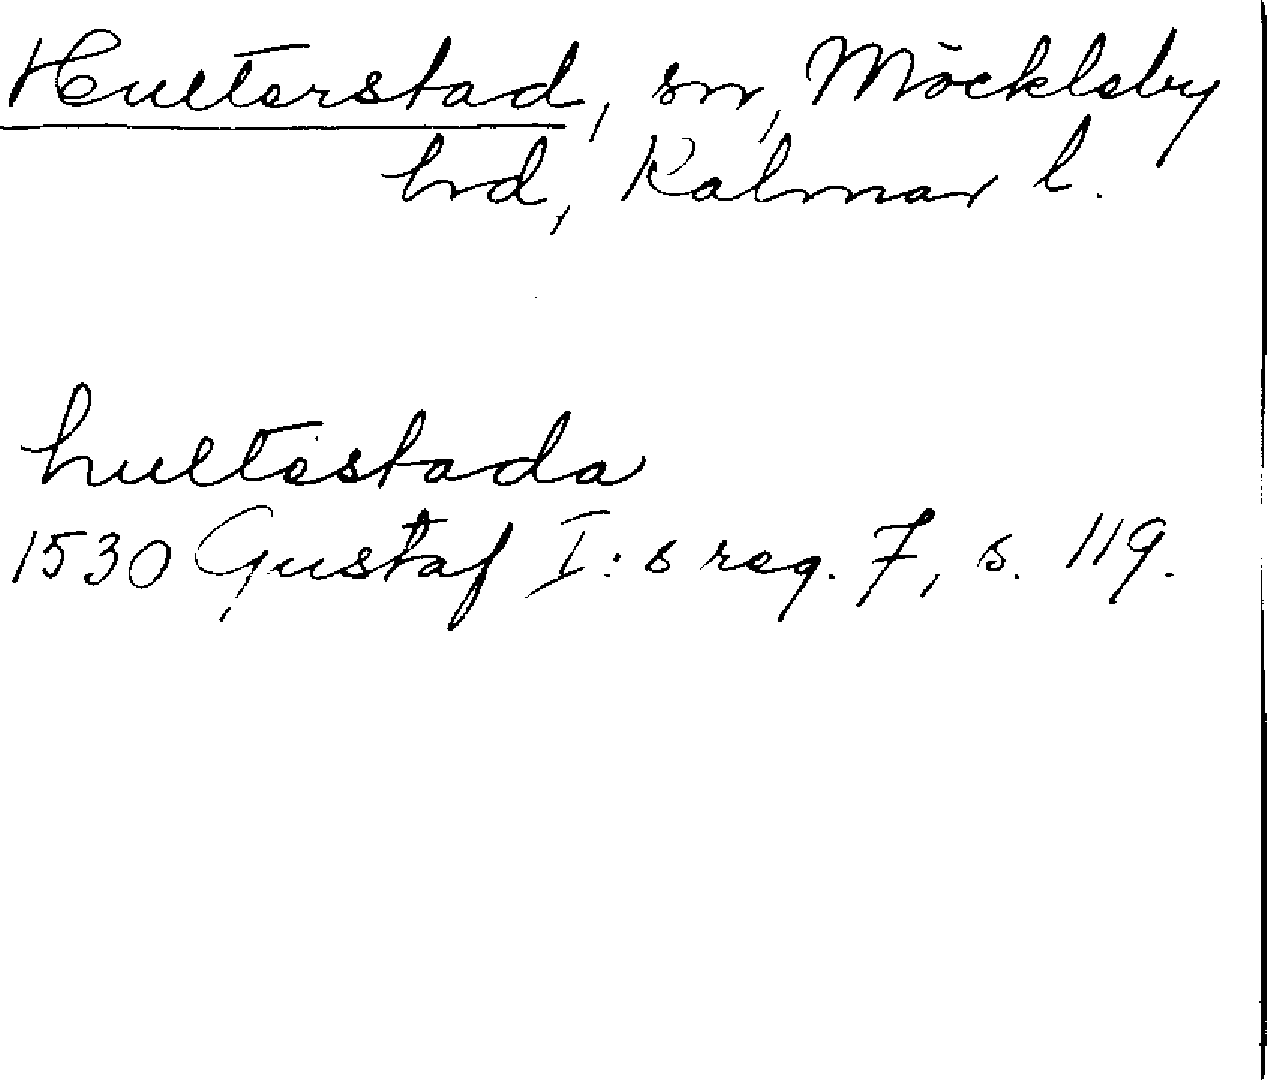 Hulterstad, sn, Möckleby
hrd, Kalmar l.
hultestada
1530 Gustaf I:s reg. 7, s. 119.